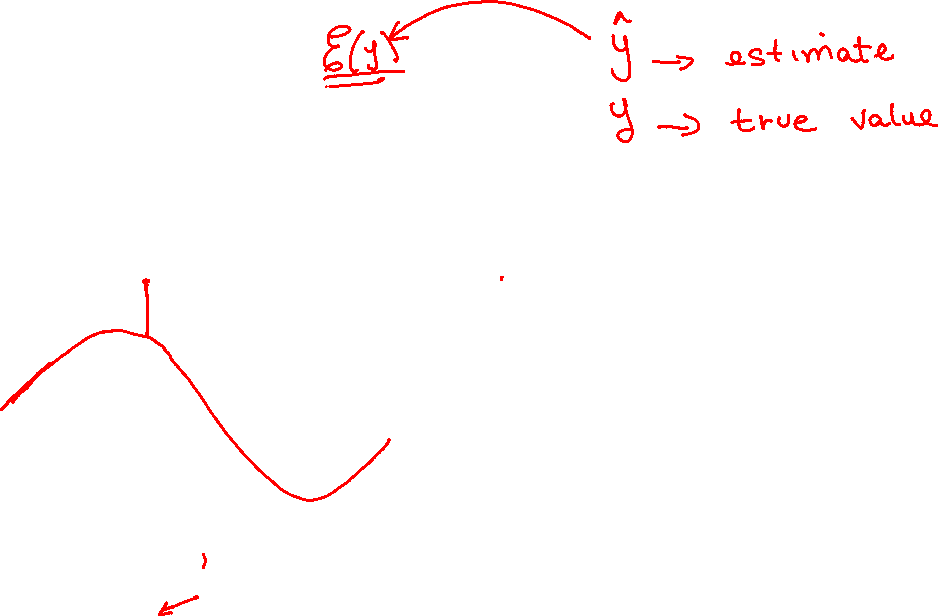 E(y) ŷ → estimate
y → true value